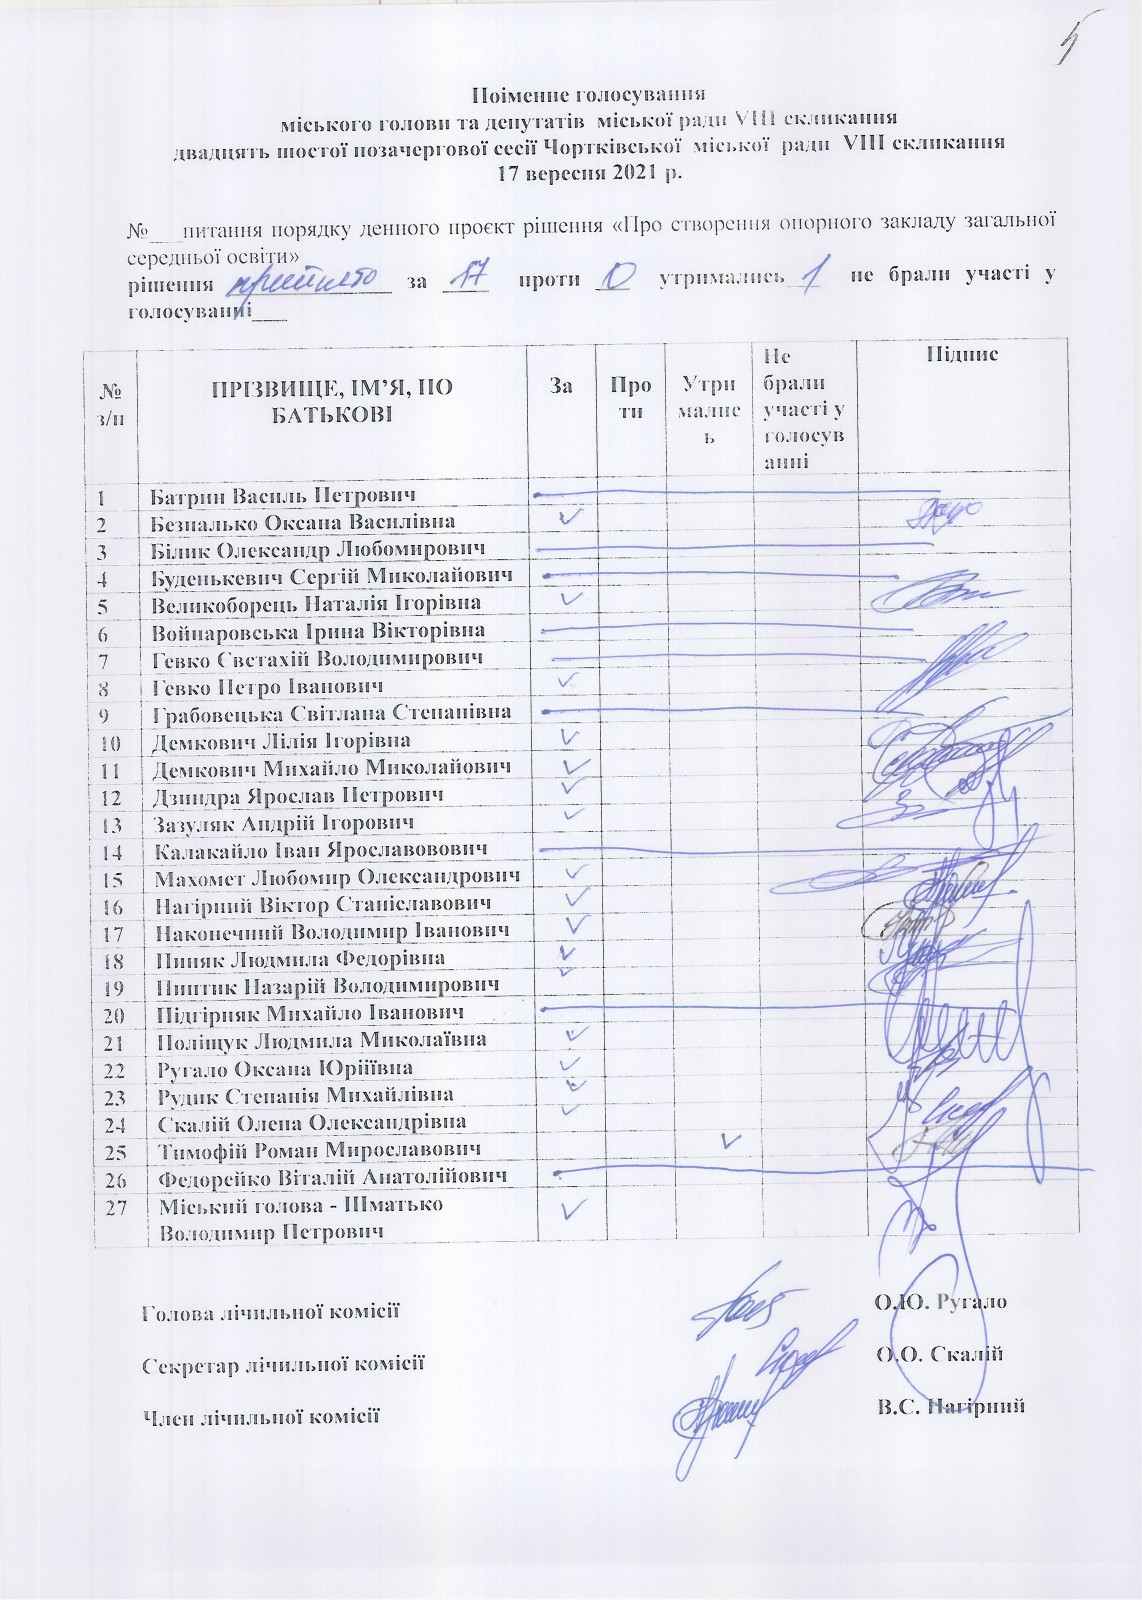 5
Поіменне голосування
міського голови та депутатів міської ради VIII скликання
двадцять шостої позачергової сесії Чортківської міської ради VIII скликання
17 вересня 2021 р.
№___питання порядку денного проєкт рішення «Про створення опорного закладу загальної
середньої освіти»
рішення прийнято за 17 проти 0 утримались 1 не брали участі у
голосуванні___
№ з/п ПРІЗВИЩЕ, ІМ’Я, ПО БАТЬКОВІ За Про ти Утри малис ь Не брали участі у голосув анні Підпис
1 Батрин Василь Петрович
2 Безпалько Оксана Василівна
3 Білик Олександр Любомирович
4 Буденькевич Сергій Миколайович
5 Великоборець Наталія Ігорівна
6 Войнаровська Ірина Вікторівна
7 Гевко Євстахій Володимирович
8 Гевко Петро Іванович
9 Грабовецька Світлана Степанівна
10 Демкович Лілія Ігорівна
11 Демкович Михайло Миколайович
12 Дзиндра Ярослав Петрович
13 Зазуляк Андрій Ігорович
14 Калакайло Іван Ярославовович
15 Махомет Любомир Олександрович
16 Нагірний Віктор Станіславович
17 Наконечний Володимир Іванович
18 Пиняк Людмила Федорівна
19 Пиптик Назарій Володимирович
20 Підгірняк Михайло Іванович
21 Поліщук Людмила Миколаївна
22 Ругало Оксана Юріїівна
23 Рудик Степанія Михайлівна
24 Скалій Олена Олександрівна
25 Тимофій Роман Мирославович
26 Федорейко Віталій Анатолійович
27 Міський голова - Шматько
Володимир Петрович
Голова лічильної комісії О.Ю. Ругало
Секретар лічильної комісії О.О. Скалій
Член лічильної комісії В.С. Нагірний